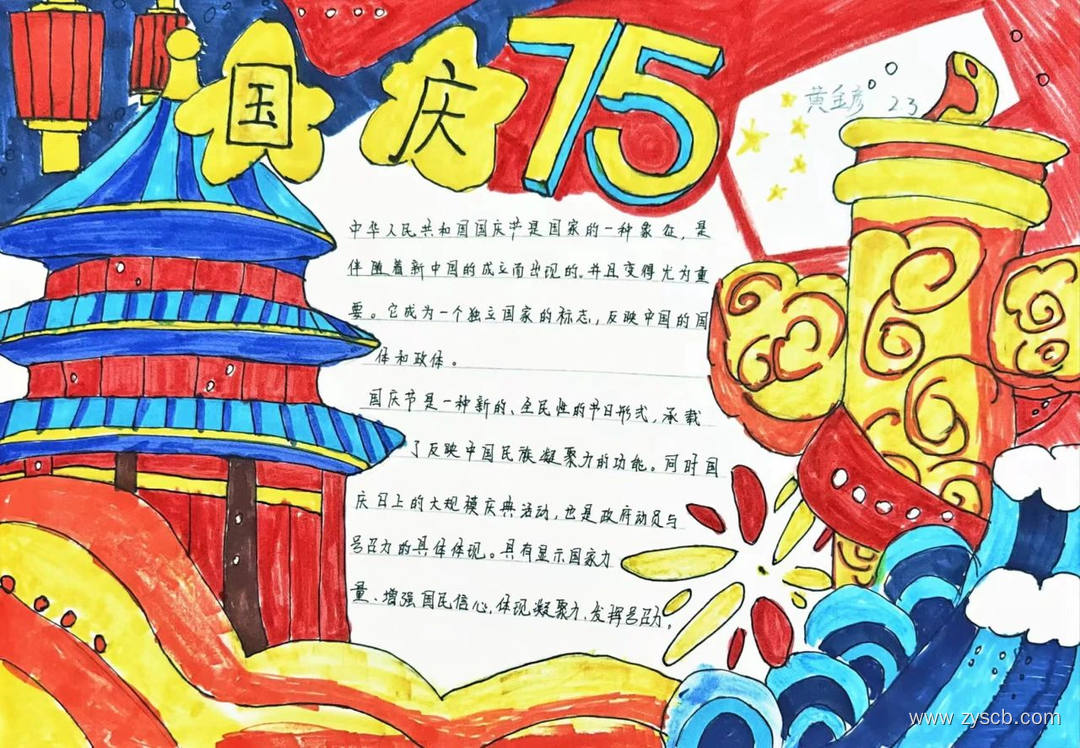 国庆75
黄金彦 23
中华人民共和国国庆节是国家的一种象征，是
伴随着新中国的成立而出现的，并且变得尤为重
要。它成为一个独立国家的标志，反映中国的国
体和政体。
国庆节是一种新的、全民性的节日形式，承载
了反映中国民族凝聚力的功能。同时国
庆日上的大规模庆典活动，也是政府动员与
号召力的具体体现。具有显示国家力
量、增强国民信心，体现凝聚力，发挥号召力。
www.zyscb.com